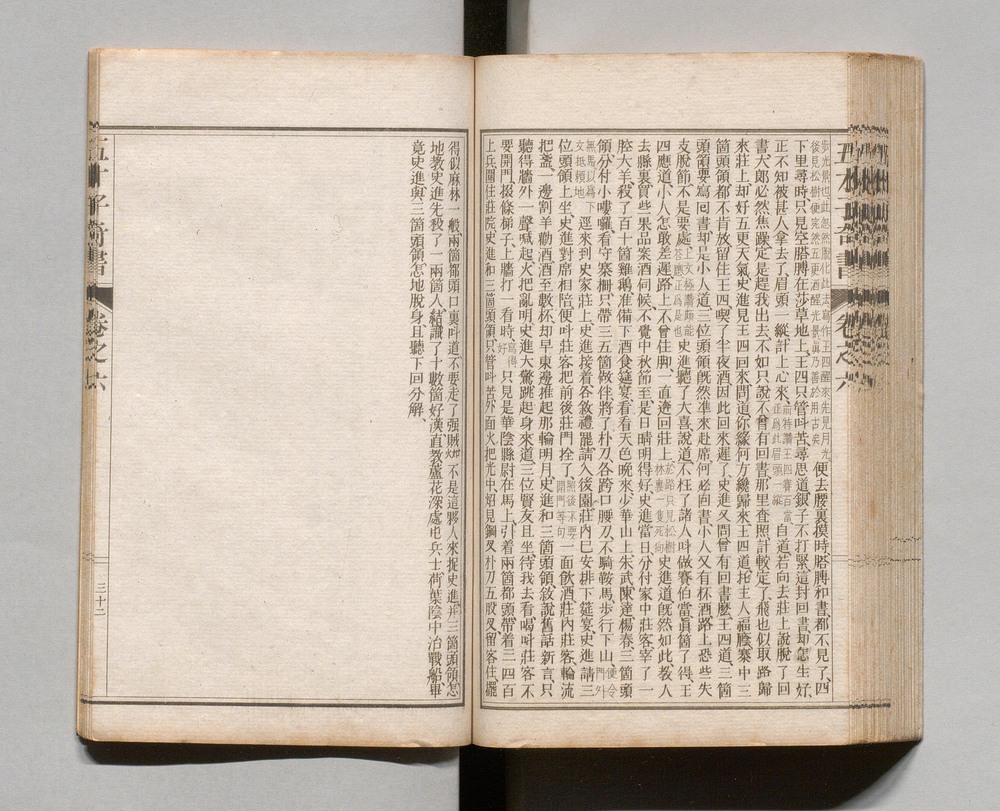 步光景也此忽然脫化此法寫作王四醒來先見月光
後見松樹便宛然五更酒醒光景眞乃善於用古矣 便去腰裏摸時搭膊和書都不見了四
下里尋時只見空搭膊在莎草地上王四只管叫苦尋思道銀子不打緊這封回書却怎生好
正不知被甚人拿去了眉頭一縱計上心來 前特讚王四賽百當正爲此眉頭一縱 自道若回去莊上說脫了回
書大郎必然焦躁定是趕我出去不如只說不曾有回書那里查照計較定了飛也似取路歸
來莊上却好五更天氣史進見王四回來問道你緣何方纔歸來王四道托主人福廕寨中三
箇頭領都不肯放留住王四喫了半夜酒因此回來遲了史進又問曾有回書麼王四道三箇
頭領要寫回書却是小人道三位頭領旣然準來赴席何必回書小人又有杯酒路上恐些失
支脫節不是要處 史進聽了大喜說道不枉了諸人叫做賽伯當眞箇了得王
四應道小人怎敢差遲路上不曾住脚一直逩回莊上 於路只見松樹林裏一隻死狗 史進道旣然如此教人
去縣裏買些果品案酒伺候不覺中秋節至是日晴明得好史進當日分付家中莊客宰了一
腔大羊殺了百十箇雞鵝准備下酒食筵宴看看天色晚來少華山上朱武陳達楊春三箇頭
領分付小嘍囉看守寨柵只帶三五箇做伴將了朴刀各跨口腰刀不騎鞍馬步行下山 便令門外
無馬以爲下文抵賴地 逕來到史家莊上史進接着各敘禮罷請入後園莊內已安排下筵宴史進請三
位頭領上坐史進對席相陪便叫莊客把前後莊門拴了 照後不要開門等句 一面飲酒莊內莊客輪流
把盞一邊割羊勸酒酒至數杯却早東邊推起那輪明月史進和三箇頭領敘說舊話新言只
聽得牆外一聲喊起火把亂明史進大驚跳起身來道三位賢友且坐待我去看喝叫莊客不
要開門掇條梯子上牆打一看時 寫得好 只見是華陰縣尉在馬上引着兩箇都頭帶着三四百
士兵圍住莊院史進和三箇頭領只管叫苦外面火把光中照見鋼叉朴刀五股叉留客住擺
得似麻林一般兩箇都頭口裏叫道不要走了强賊 不是這夥人來捉史進并三箇頭領怎
地教史進先殺了一兩箇人結識了十數箇好漢直教蘆花深處屯兵士荷葉陰中治戰船畢
竟史進與三箇頭領怎地脫身且聽下回分解
五才子奇書
卷之六
三十二
五才子奇書
卷之六